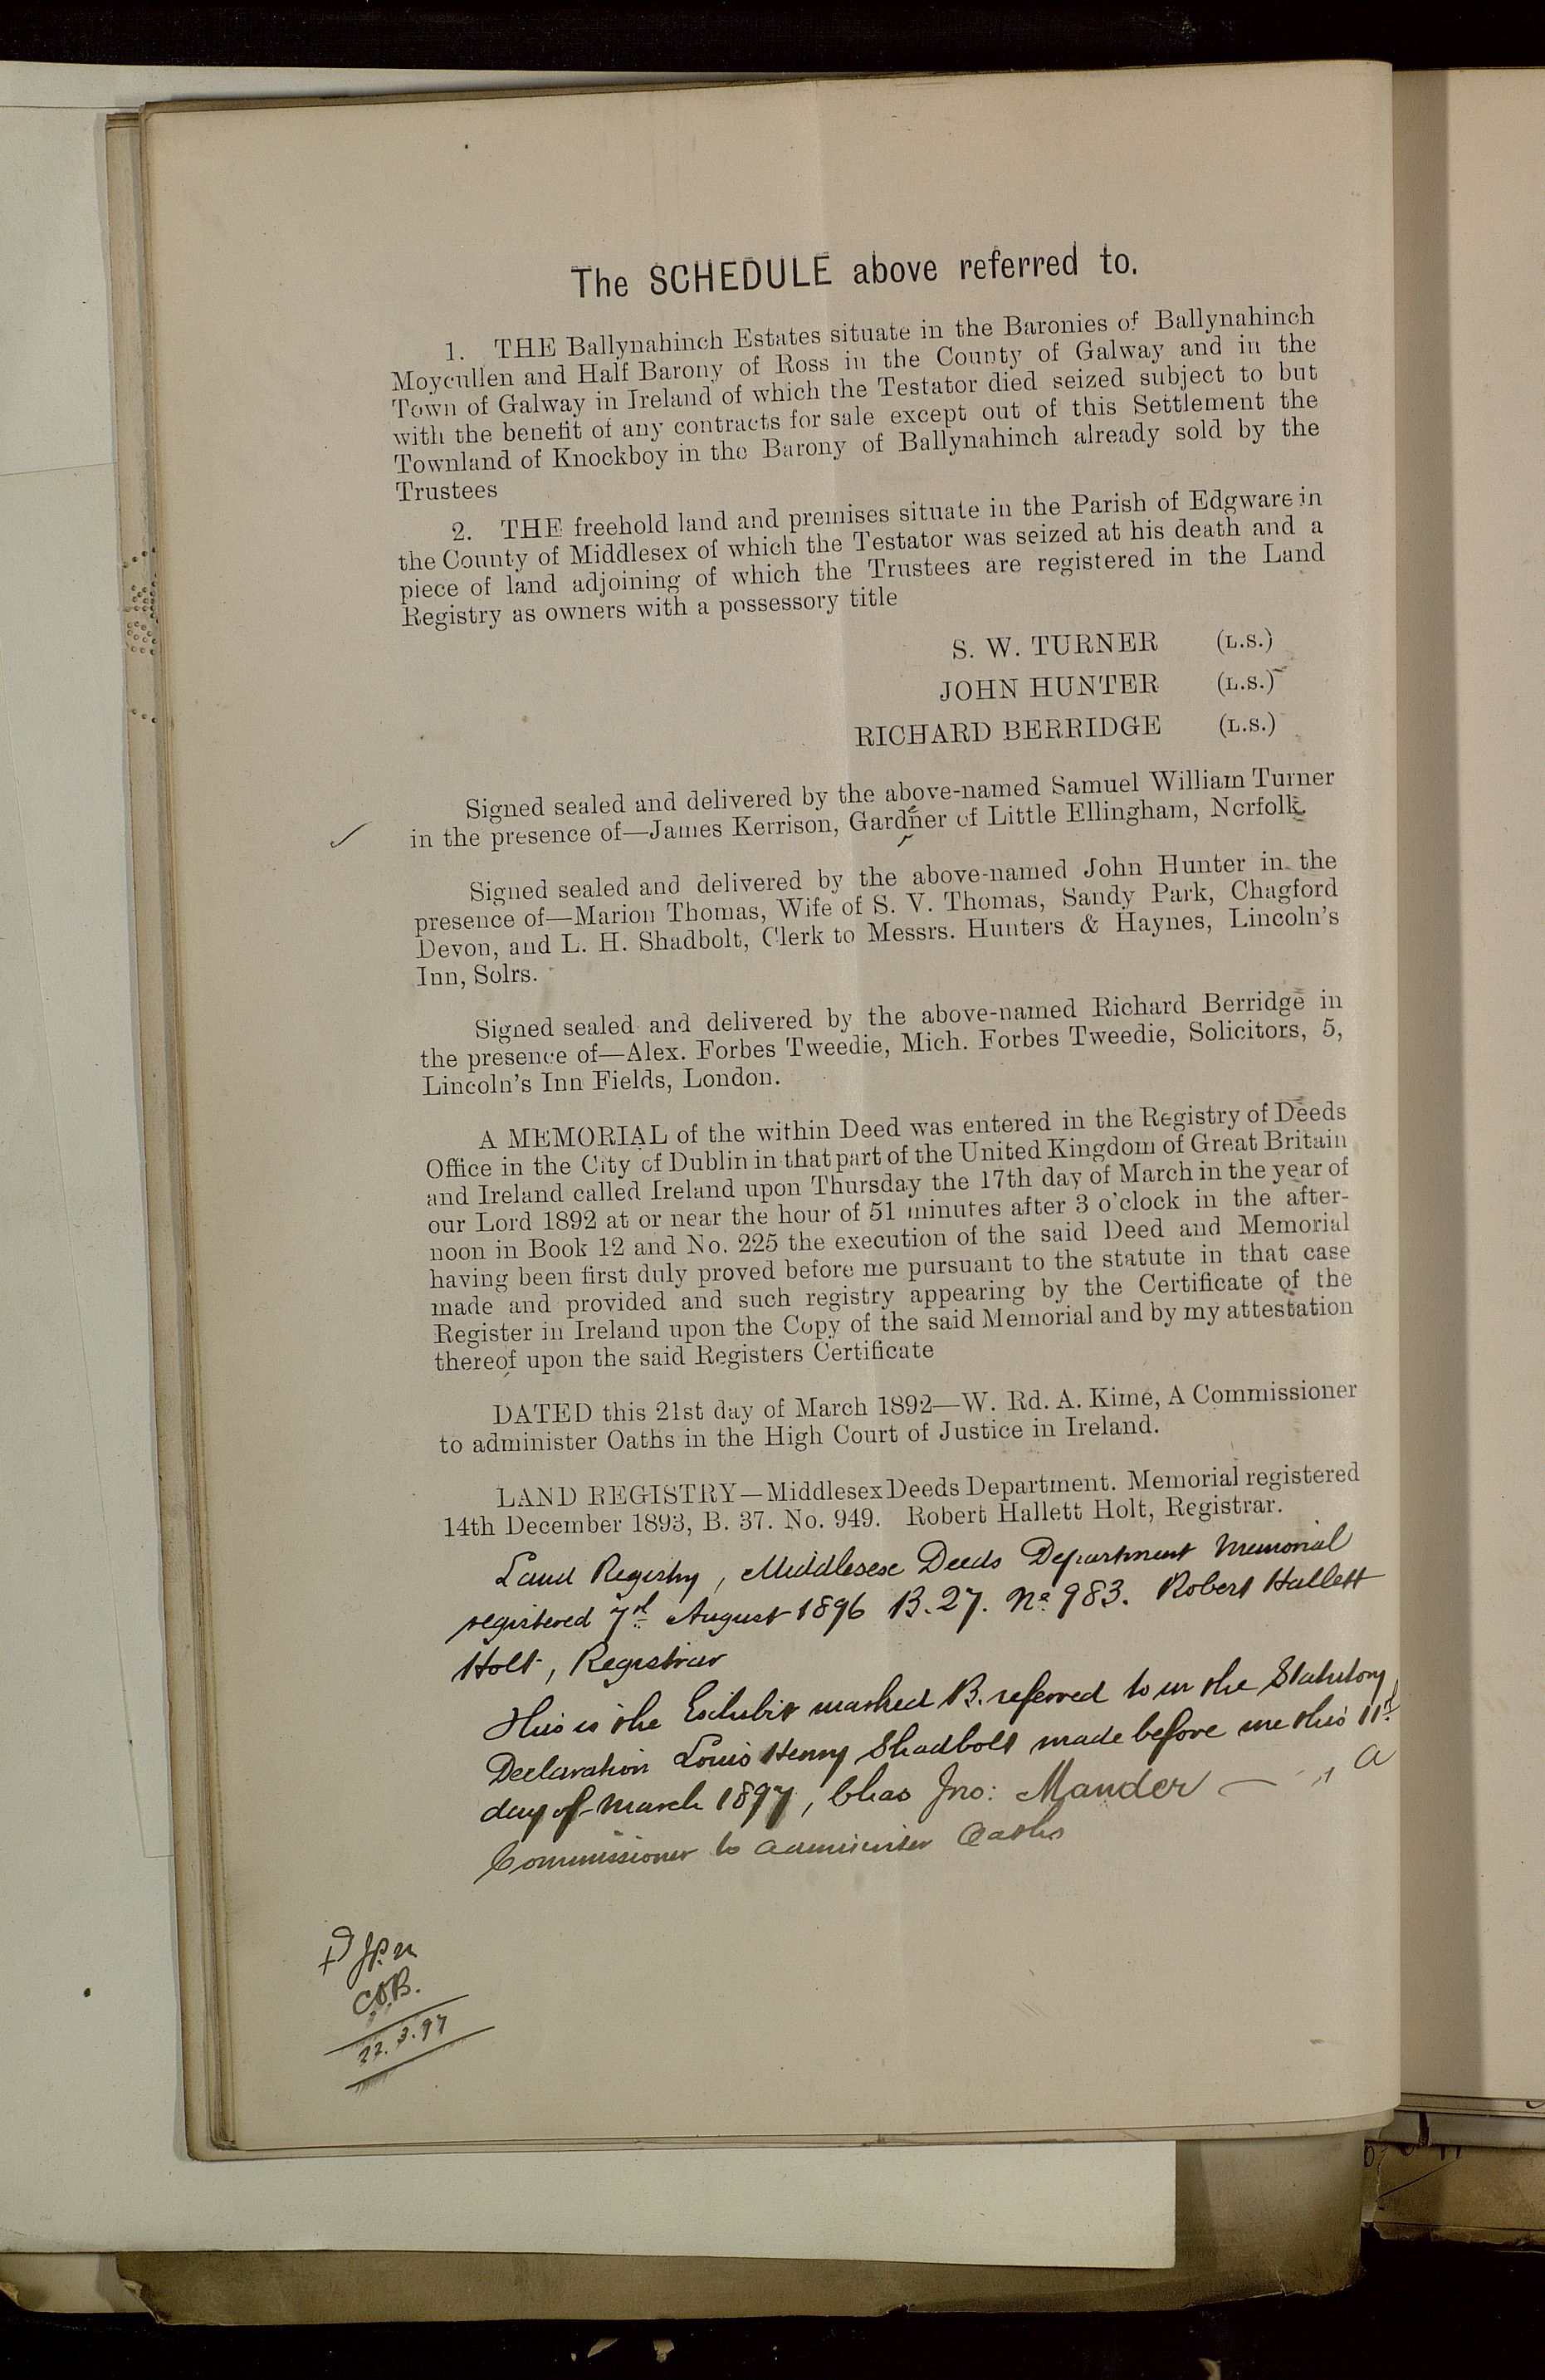 The SCHEDULE above referred to.
1. THE Ballynahinch Estates situate in the Baronies of Ballynahinch
Moycullen and Half Barony of Ross in the County of Galway and in the
Town of Galway in Ireland of which the Testator died seized subject to but
with the benefit of any contracts for sale except out of this Settlement the
Townland of Knockboy in the Barony of Ballynahinch already sold by the
Trustees
2. THE freehold land and premises situate in the Parish of Edgware in
the County of Middlesex of which the Testator was seized at his death and a
piece of land adjoining of which the Trustees are registered in the Land
Registry as owners with a possessory title
S. W. TURNER (L.S.)
JOHN HUNTER (L.S.)
RICHARD BERRIDGE (L.S.)
Signed sealed and delivered by the above-named Samuel William Turner
in the presence of—James Kerrison, Gardner of Little Ellingham, Norfolk.
Signed sealed and delivered by the above-named John Hunter in the
presence of—Marion Thomas, Wife of S. V. Thomas, Sandy Park, Chagford
Devon, and L. H. Shadbolt, Clerk to Messrs. Hunters & Haynes, Lincoln's
Inn, Solrs.
Signed sealed and delivered by the above-named Richard Berridge in
the presence of—Alex. Forbes Tweedie, Mich. Forbes Tweedie, Solicitors, 5,
Lincoln's Inn Fields, London.
A MEMORIAL of the within Deed was entered in the Registry of Deeds
Office in the City of Dublin in that part of the United Kingdom of Great Britain
and Ireland called Ireland upon Thursday the 17th day of March in the year of
our Lord 1892 at or near the hour of 51 minutes after 3 o'clock in the after-
noon in Book 12 and No. 225 the execution of the said Deed and Memorial
having been first duly proved before me pursuant to the statute in that case
made and provided and such registry appearing by the Certificate of the
Register in Ireland upon the Copy of the said Memorial and by my attestation
thereof upon the said Registers Certificate
DATED this 21st day of March 1892—W. Rd. A. Kime, A Commissioner
to administer Oaths in the High Court of Justice in Ireland.
LAND REGISTRY—Middlesex Deeds Department. Memorial registered
14th December 1893, B. 37. No. 949. Robert Hallett Holt, Registrar.
Land Registry, Middlesex Deeds Department Memorial
registered 7th August 1896 B. 27. No. 983. Robert Hallett
Holt, Registrar
This is the Exhibit marked B. referred to in the Statutory
Declaration Louis Henry Shadbolt made before me this 11th
day of March 1897, Chas Jno: Mander — , a
Commissioner to administer Oaths
C.O.B.
22.3.97